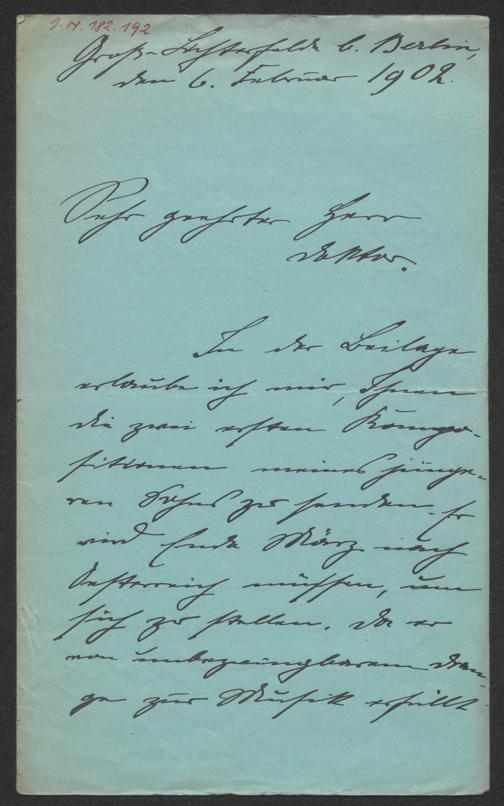 J. N. 182.192
Groß-Lichterfelde b. Berlin,
den 6. Februar 1902.
Sehr geehrter Herr
Doktor.
In der Beilage
erlaube ich mir, Ihnen
die zwei ersten Kompo-
sitionen meines jünge-
ren Sohns zu senden. Er
wird Ende März nach
Oesterreich müssen, um
sich zu stellen. Da er
von unbezwingbarem Dran-
ge zur Musik erfüllt